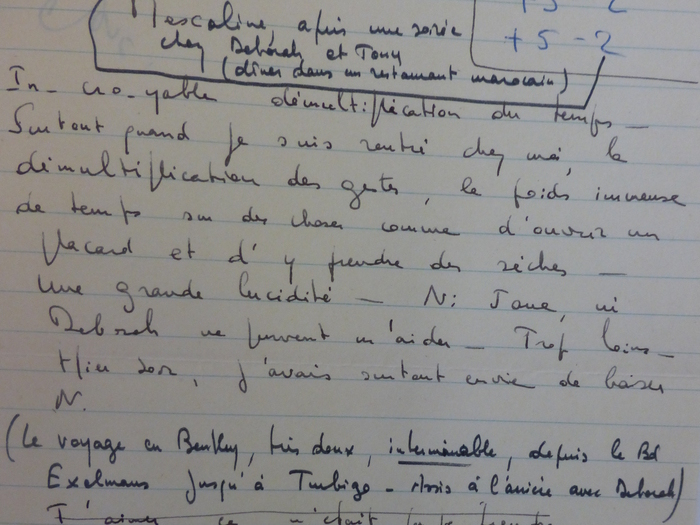 +5 2
Mescaline, après une soirée
+5 -2
chez Deborah et Tony
(dîner dans un restaurant marocain)
In-cro-yable démultiplication du temps —
Surtout quand je suis rentré chez moi, la
démultiplication des gestes, le poids immense
de temps sur des choses comme d'ouvrir un
placard et d'y prendre des sèches —
Une grande lucidité — Ni Jane, ni
Deborah ne peuvent m'aider — Trop loins —
Hier soir, j'avais surtout envie de baiser
N.
(Le voyage en Bentley, très doux, interminable, depuis le Bd
Exelmans jusqu'à Turbigo — Assis à l'arrière avec Deborah)